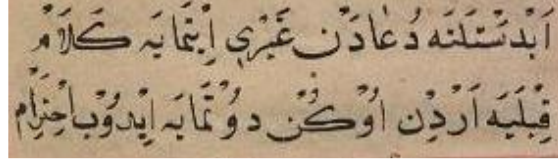 اَبْدَسْتَلَنَه دُعَادَنْ غَيْرِي اِيتْمَايَه كَلَامْ
قِبْلَيَه اَرْدِنْ اُوكُنْ دوُتْمَايَه اِيدُوبْ اِحْتِرَامْ